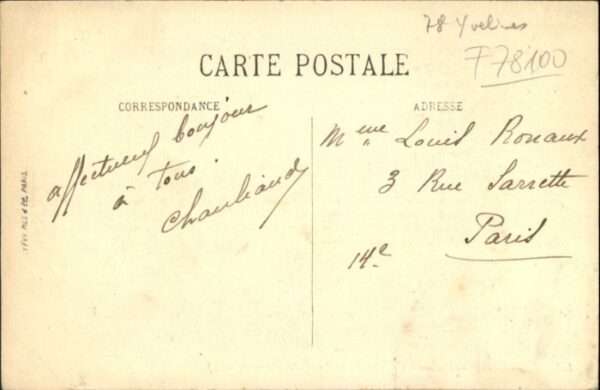 78 Yvelines
F78100
CARTE POSTALE
CORRESPONDANCE
ADRESSE
affectueux bonjour
à tous.
Mme Louis Rouaux
3 Rue Sarrette
Paris
14e